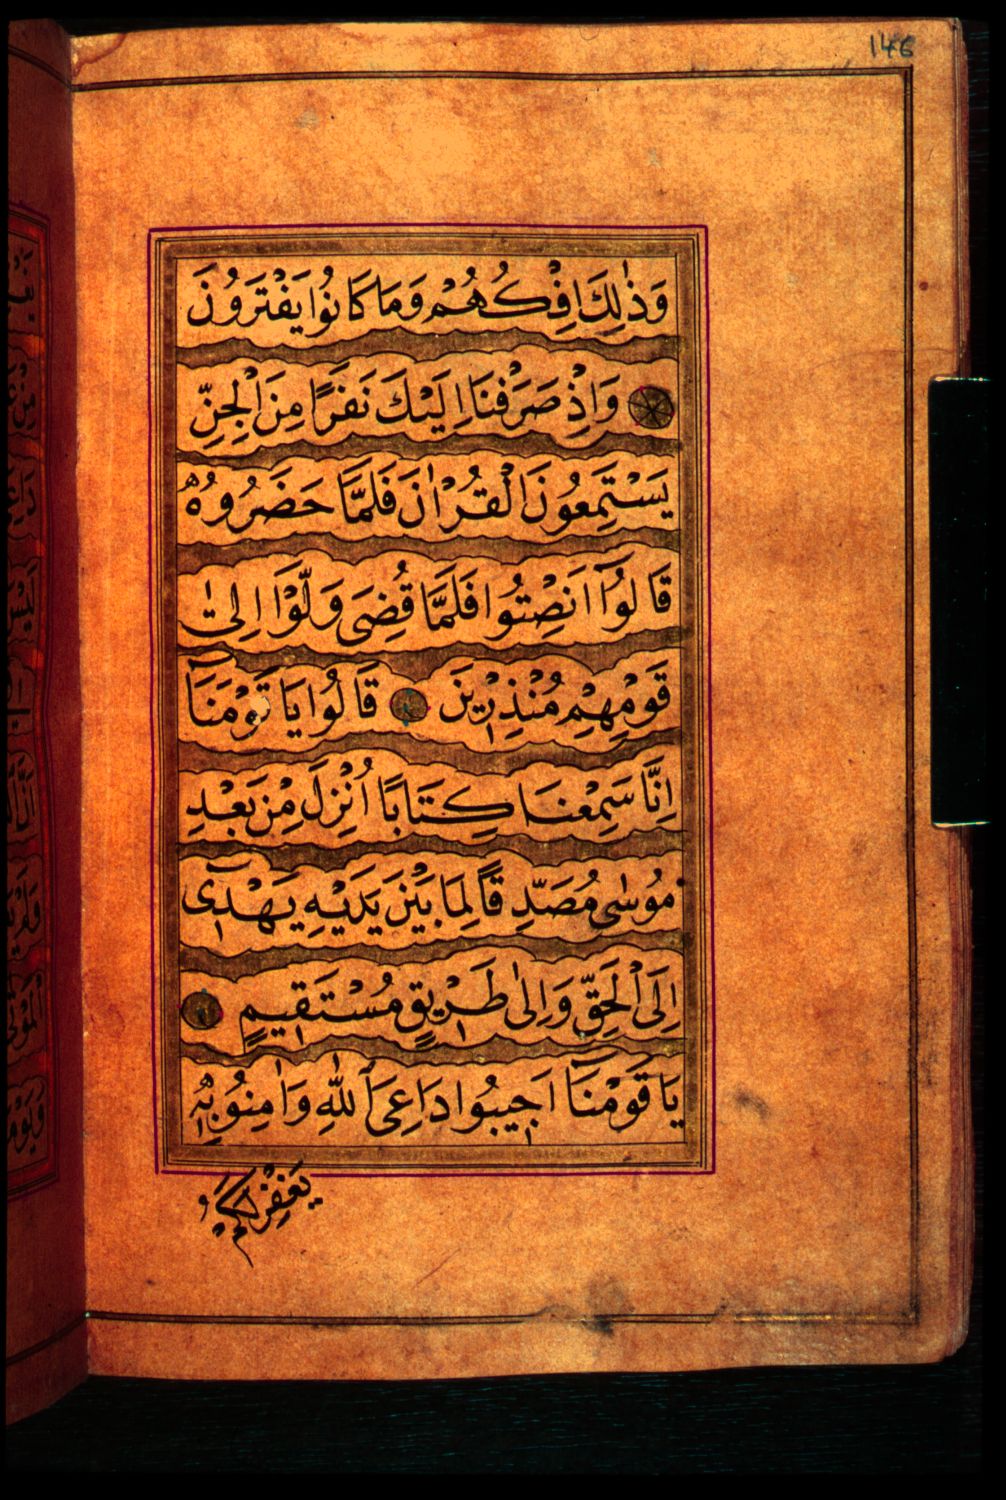 146
وَذٰلِكَ اِفْكُهُمْ وَمَا كَانُوا يَفْتَرُونَ
وَاِذْ صَرَفْنَا اِلَيْكَ نَفَرًا مِنَ الْجِنِّ
يَسْتَمِعُونَ الْقُرْاٰنَ فَلَمَّا حَضَرُوهُ
قَالُوآ اَنْصِتُوا فَلَمَّا قُضِىَ وَلَّوْا اِلٰى
قَوْمِهِمْ مُنْذِرِينَ قَالُوا يَا قَوْمَنَآ
اِنَّا سَمِعْنَا كِتَابًا اُنْزِلَ مِنْ بَعْدِ
مُوسٰى مُصَدِّقًا لِمَا بَيْنَ يَدَيْهِ يَهْدِىٓ
اِلَى الْحَقِّ وَاِلٰى طَرِيقٍ مُسْتَقِيمٍ
يَا قَوْمَنَآ اَجِيبُوا دَاعِىَ اللّٰهِ وَاٰمِنُوا بِهِ
يَغْفِرْ لَكُمْ